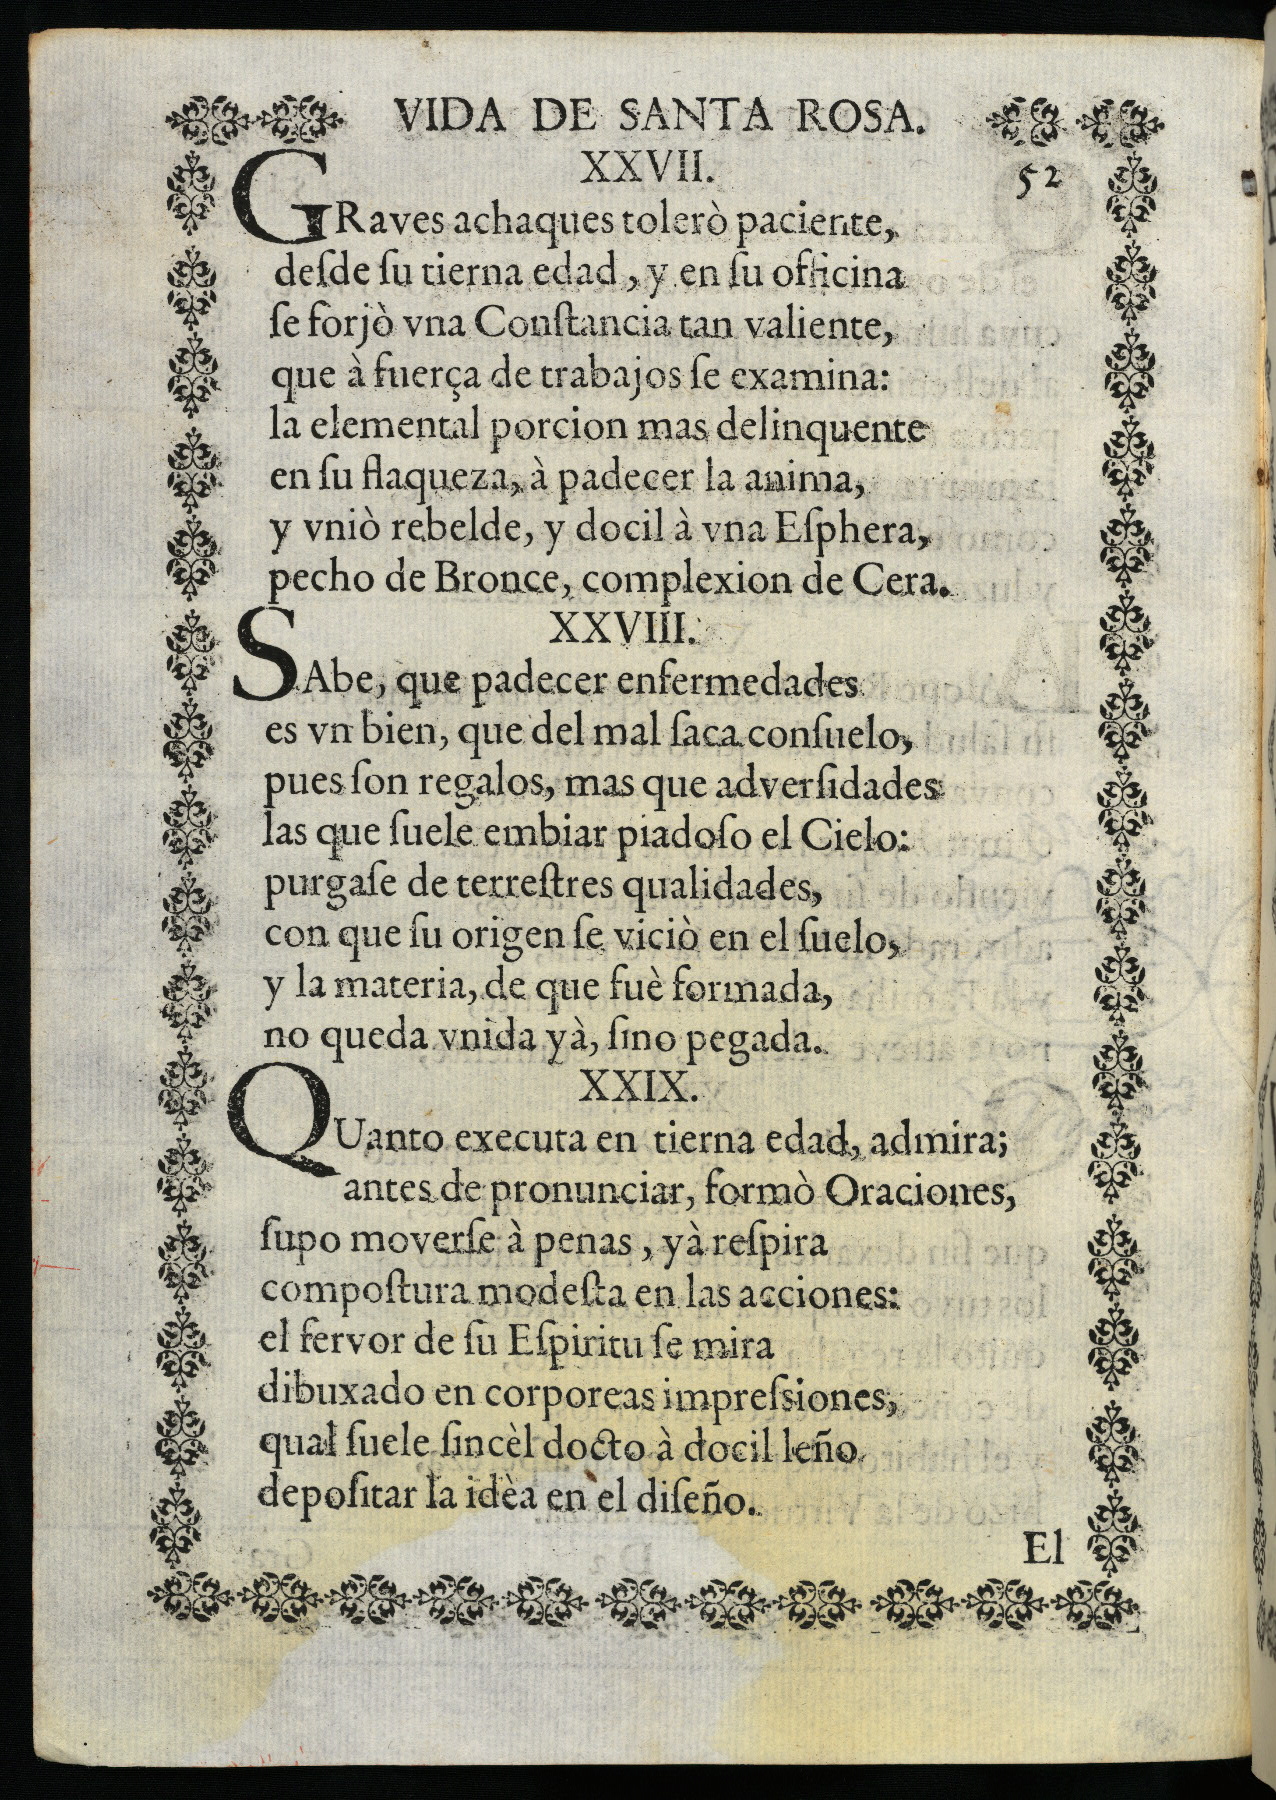 VIDA DE SANTA ROSA.
XXVII.
52
GRaves achaques tolerò paciente,
deſde ſu tierna edad, y en ſu officina
ſe forjò vna Conſtancia tan valiente,
que à fuerça de trabajos ſe examina:
la elemental porcion mas delinquente
en ſu flaqueza, à padecer la anima,
y vniò rebelde, y docil à vna Eſphera,
pecho de Bronce, complexion de Cera.
XXVIII.
SAbe, que padecer enfermedades
es vn bien, que del mal ſaca conſuelo,
pues ſon regalos, mas que adverſidades
las que ſuele embiar piadoſo el Cielo:
purgaſe de terreſtres qualidades,
con que ſu origen ſe viciò en el ſuelo,
y la materia, de que fuè formada,
no queda vnida yà, ſino pegada.
XXIX.
QUanto executa en tierna edad, admira;
antes de pronunciar, formò Oraciones,
ſupo moverſe à penas, yà reſpira
compoſtura modeſta en las acciones:
el fervor de ſu Eſpiritu ſe mira
dibuxado en corporeas impreſsiones,
qual ſuele ſincèl docto à docil leño
depoſitar la idèa en el diſeño.
El